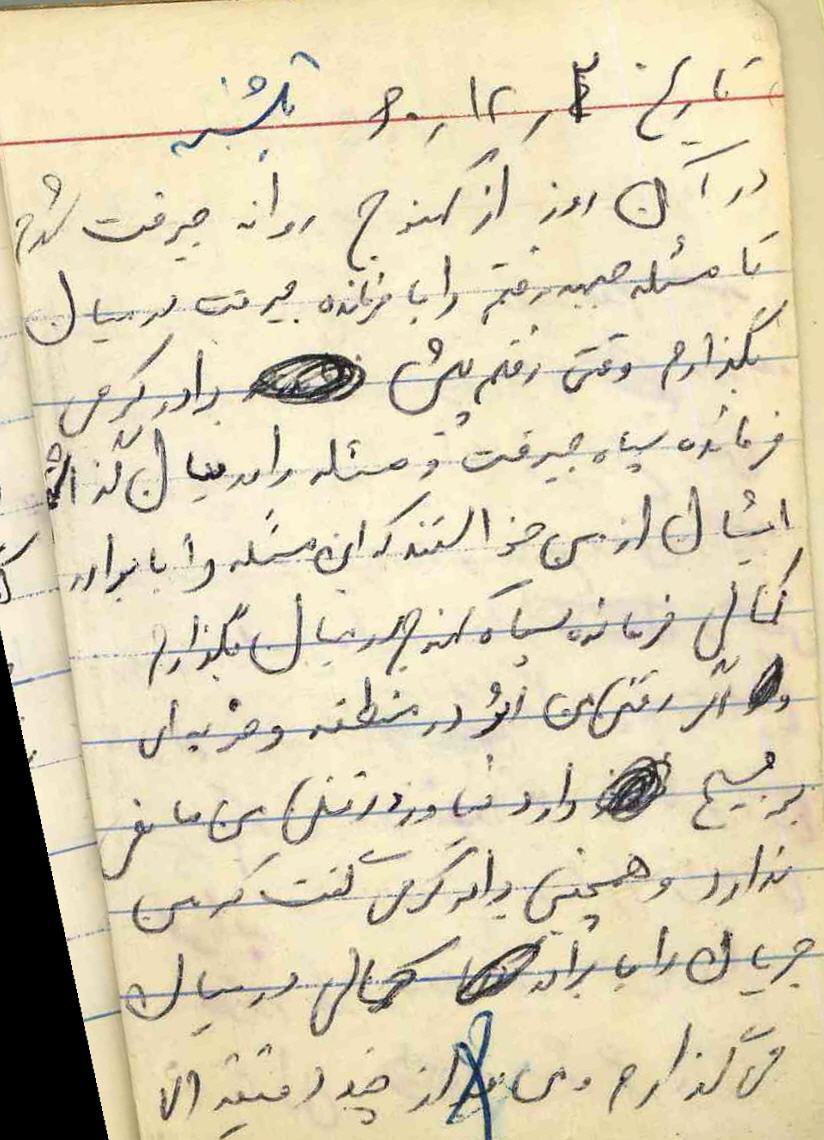 تاریخ ۲ ر ۱۲ ر ۶۰ یکشنبه
در آن روز از کهنوج روانه جیرفت شدم
تا مسئله جبهه رفتنم را با فرمانده جیرفت در میان
بگذارم وقتی رفتم پیش برادر کرمی
فرمانده سپاه جیرفت و مسئله را در میان گذاشتم
ایشان از من خواستند که این مسئله را با برادر
کمالی فرمانده سپاه کهنوج در میان بگذارم
و اگر رفتن من اثر در منطقه و ضربه ای
بر بسیج وارد نیاورد رفتن من مانعی
ندارد و همچنین برادر کرمی گفت که من
جریان را با برادر کمالی در میان
می گذارم و من بعد از چند دقیقه